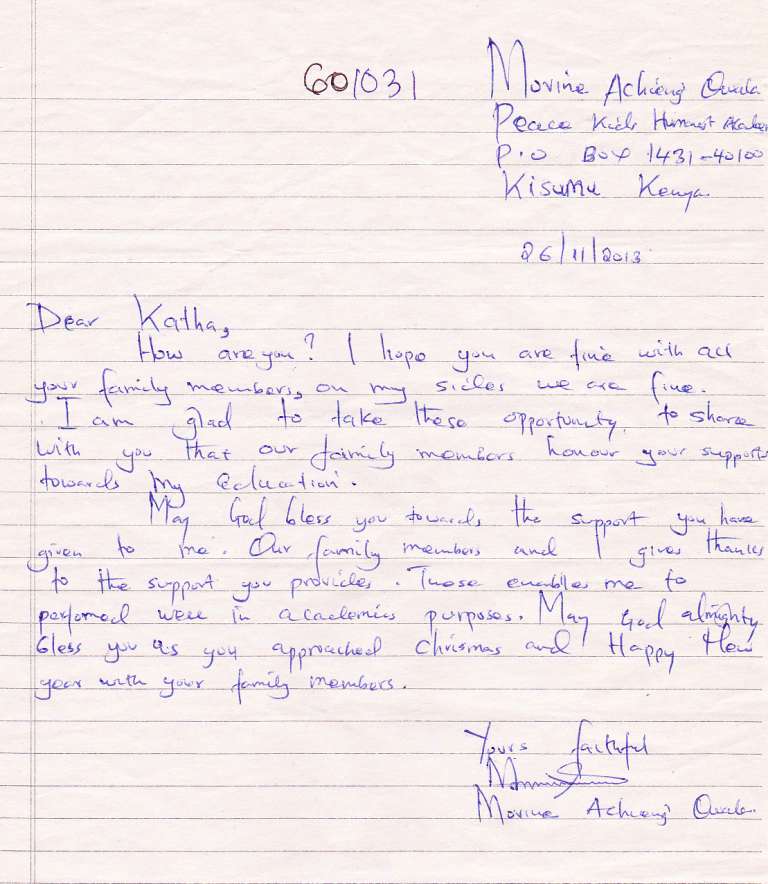 601031
Movine Achieng'
Peace Kids Humanist
P.O BOX 1431-40100
Kisumu Kenya.
26/11/2013
Dear Katha,
How are you? I hope you are fine with all
your family members, on my sides we are fine.
I am glad to take these opportunity to share
with you that our family members honour your supports
towards my education.
May God bless you towards the support you have
given to me. Our family members and I gives thanks
to the support you provides. These enables me to
perfomed well in academics purposes. May God almighty
bless you as you approached Chrismas and Happy New
year with your family members.
Yours faithful
Movine Achieng'